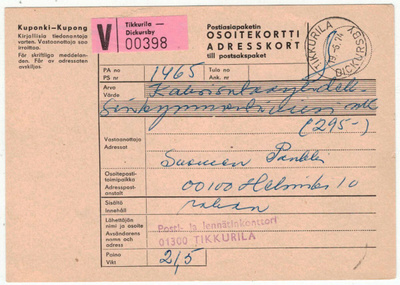 Kuponki–Kupong
Kirjallisia tiedonantoja
varten. Vastaanottaja saa
irroittaa.
För skriftliga meddelan-
den. Får av adressaten
avskiljas.
V
Tikkurila —
Dickursby
00398
Postiasiapaketin
OSOITEKORTTI
ADRESSKORT
till postsakspaket
TIKKURILA
19.-6.74
DICKURSBY
PA no
PS nr
1465
Tulo no
Ank. nr
Arvo
Värde
Kaksisataayhdeksän-
kymmentäviisi mk
(295-)
Vastaanottaja
Adressat
Suomen Pankki
Osoiteposti-
toimipaikka
Adresspost-
anstalt
00100 Helsinki 10
Sisältö
Innehåll
rahaa
Lähettäjän
nimi ja osoite
Avsändarens
namn och
adress
Posti- ja lennätinkonttori
01300 TIKKURILA
Paino
Vikt
2,5